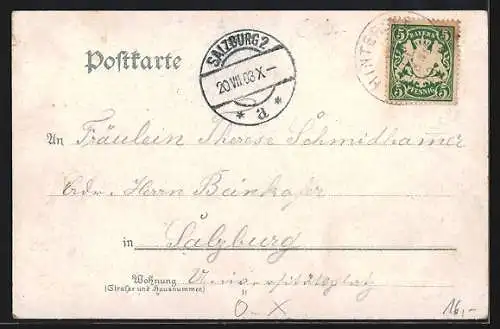 Postkarte
SALZBURG 2
20 VII 03 X–
* a *
HINTER
5 BAYERN 5
5 PFENNIG 5
An Fräulein Therese Schmidhamer
Adr. Herrn Beinkofer
in Salzburg
Wohnung Universitätsplatz
(Straße und Hausnummer)
Ö-X
16,-